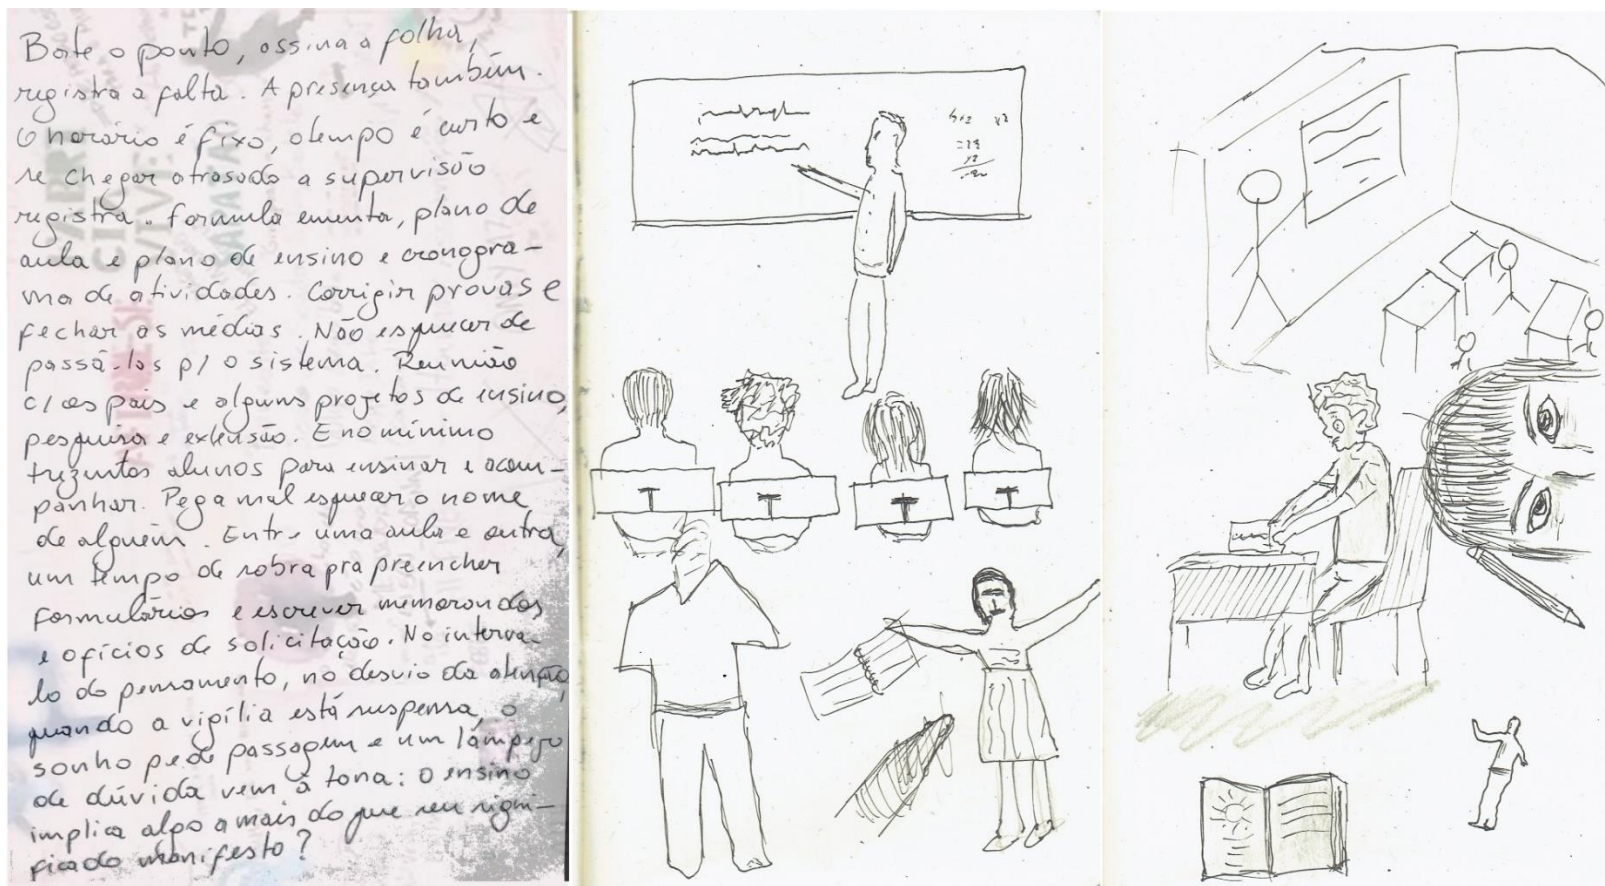 Bate o ponto, assina a folha,
registra a falta. A presença também.
O horário é fixo, o tempo é curto e
se chegar atrasado a supervisão
registra. Formula ementa, plano de
aula e plano de ensino e cronogra-
ma de atividades. Corrigir provas e
fechar as médias. Não esquecer de
passá-las p/ o sistema. Reunião
c/ os pais e alguns projetos de ensino,
pesquisa e extensão. E no mínimo
trezentos alunos para ensinar e acom-
panhar. Pega mal esquecer o nome
de alguém. Entre uma aula e outra,
um tempo de sobra pra preencher
formulários e escrever memorandos
e ofícios de solicitação. No interva-
lo do pensamento, no desvio da atenção,
quando a vigília está suspensa, o
sonho pede passagem e um lampejo
de dúvida vem à tona: O ensino
implica algo a mais do que seu signi-
ficado manifesto?